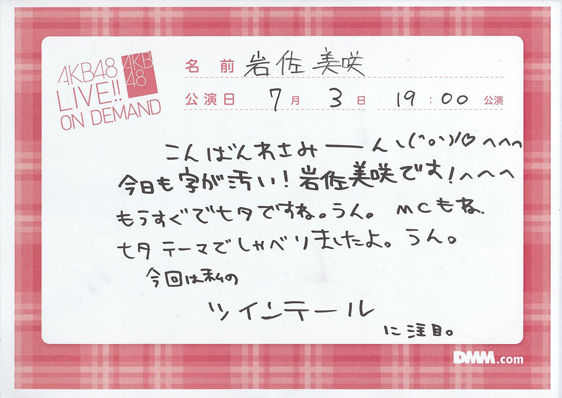 AKB48
LIVE!!
ON DEMAND
AKB
48
名前 岩佐美咲
公演日 7月 3日 19:00公演
こんばんわさみーーんヽ(^o^)ノ♡へへへ
今日も字が汚い!岩佐美咲です!へへへ
もうすぐで七夕ですね。うん。MCもね、
七夕テーマでしゃべりましたよ。うん。
今回は私の
ツインテール
に注目。
DMM.com